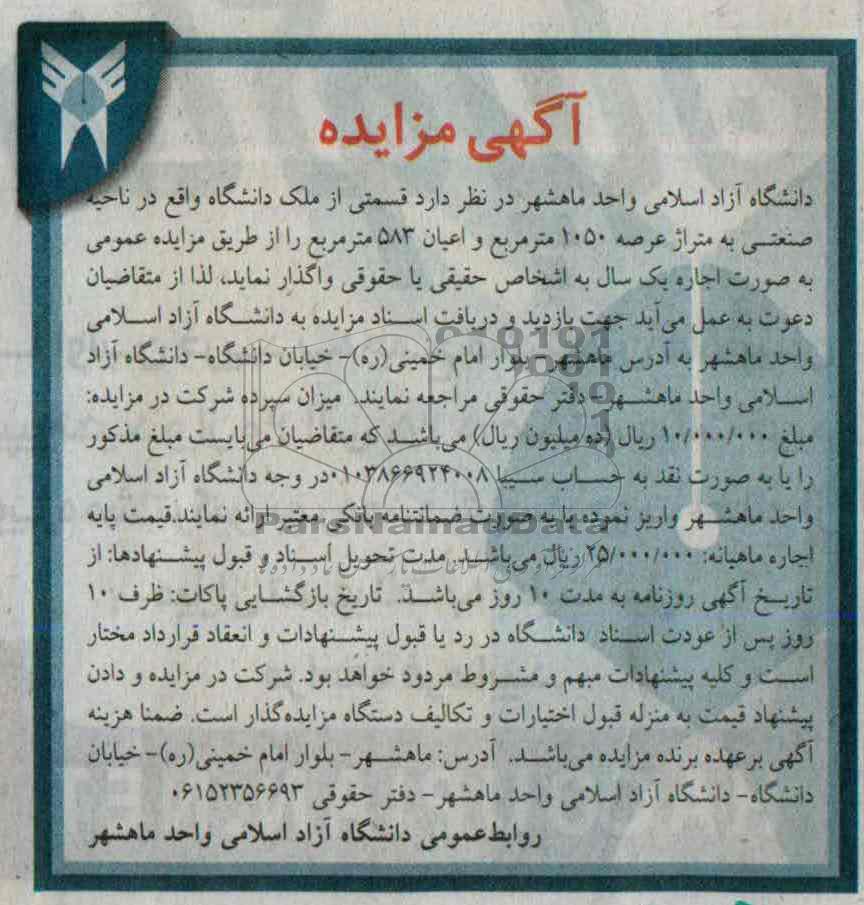 آگهی مزایده
دانشگاه آزاد اسلامی واحد ماهشهر در نظر دارد قسمتی از ملک دانشگاه واقع در ناحیه
صنعتی به متراژ عرصه ۱۰۵۰ مترمربع و اعیان ۵۸۳ مترمربع را از طریق مزایده عمومی
به صورت اجاره یک سال به اشخاص حقیقی یا حقوقی واگذار نماید، لذا از متقاضیان
دعوت به عمل می‌آید جهت بازدید و دریافت اسناد مزایده به دانشگاه آزاد اسلامی
واحد ماهشهر به آدرس ماهشهر- بلوار امام خمینی(ره)- خیابان دانشگاه- دانشگاه آزاد
اسلامی واحد ماهشهر- دفتر حقوقی مراجعه نمایند. میزان سپرده شرکت در مزایده:
مبلغ ۱۰/۰۰۰/۰۰۰ ریال (ده میلیون ریال) می‌باشد که متقاضیان می‌بایست مبلغ مذکور
را یا به صورت نقد به حساب سیبا ۰۱۰۳۸۶۶۹۲۴۰۰۸ در وجه دانشگاه آزاد اسلامی
واحد ماهشهر واریز نموده یا به صورت ضمانتنامه بانکی معتبر ارائه نمایند.قیمت پایه
ParsNamadData
اجاره ماهیانه: ۲۵/۰۰۰/۰۰۰ ریال می‌باشد. مدت تحویل اسناد و قبول پیشنهادها: از
تاریخ آگهی روزنامه به مدت ۱۰ روز می‌باشد. تاریخ بازگشایی پاکات: ظرف ۱۰
روز پس از عودت اسناد دانشگاه در رد یا قبول پیشنهادات و انعقاد قرارداد مختار
است و کلیه پیشنهادات مبهم و مشروط مردود خواهد بود. شرکت در مزایده و دادن
پیشنهاد قیمت به منزله قبول اختیارات و تکالیف دستگاه مزایده‌گذار است. ضمنا هزینه
آگهی برعهده برنده مزایده می‌باشد. آدرس: ماهشهر- بلوار امام خمینی(ره)- خیابان
دانشگاه- دانشگاه آزاد اسلامی واحد ماهشهر- دفتر حقوقی ۰۶۱۵۲۳۵۶۶۹۳
روابط‌عمومی دانشگاه آزاد اسلامی واحد ماهشهر